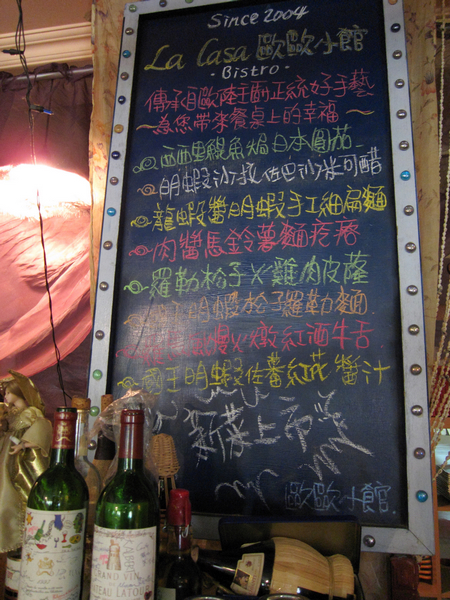 Since 2004
La Casa 歐歐小館
Bistro
傳承自歐陸主廚正統好手藝
為您帶來餐桌上的幸福
西西里鰻魚焗日本圓茄
明蝦沙拉佐巴沙米可醋
龍蝦醬明蝦手工細扁麵
肉醬馬鈴薯麵疙瘩
羅勒松子X雞肉皮薩
明蝦松子羅勒麵
慢火燉紅酒牛舌
國王明蝦佐蕃紅花醬汁
新菜上市
歐歐小館
GRAND VIN
CHATEAU LATOUR